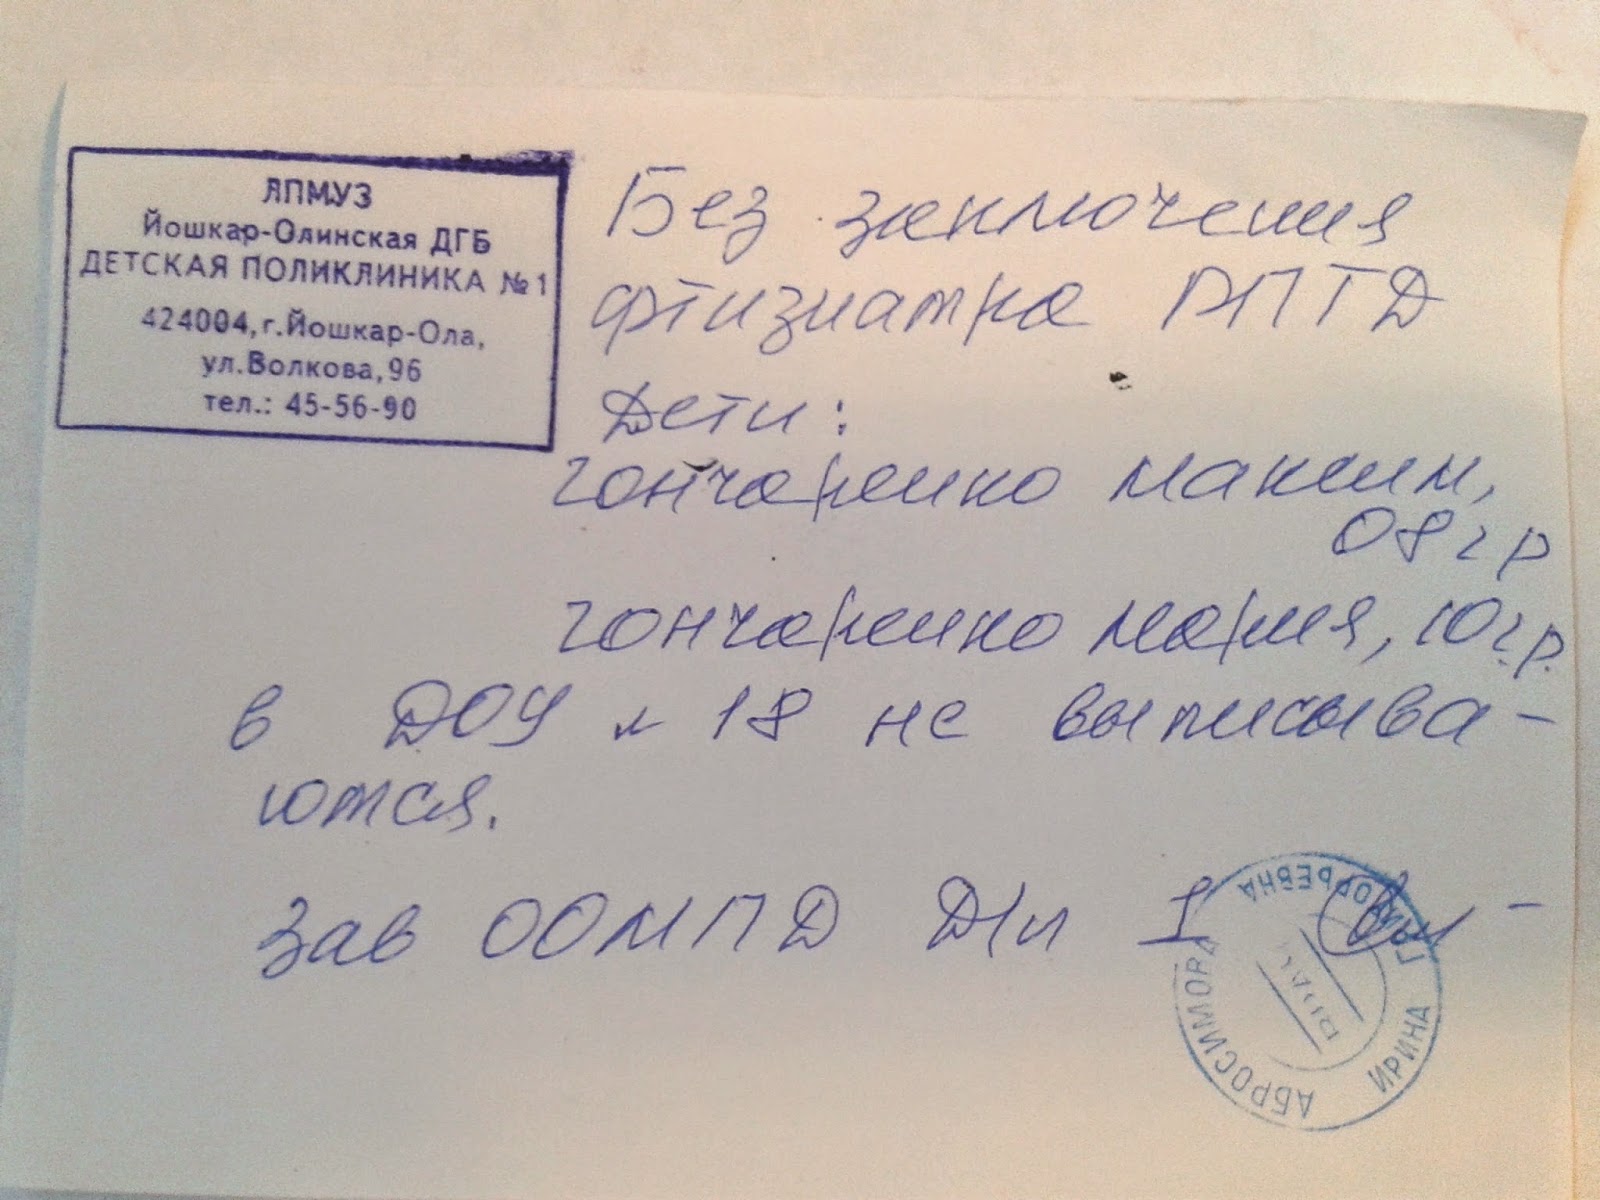 ЛПМУЗ
Йошкар-Олинская ДГБ
ДЕТСКАЯ ПОЛИКЛИНИКА №1
424004, г.Йошкар-Ола,
ул.Волкова,96
тел.: 45-56-90
Без заключения
фтизиатра РПТД
Дети:
Гончаренко Максим,
08 гр
Гончаренко Мария, 10 г.р.
в ДОУ № 18 не выписыва-
ются.
Зав ООМПД Д/п 1
АБРОСИМОВА ИРИНА ГРИГОРЬЕВНА